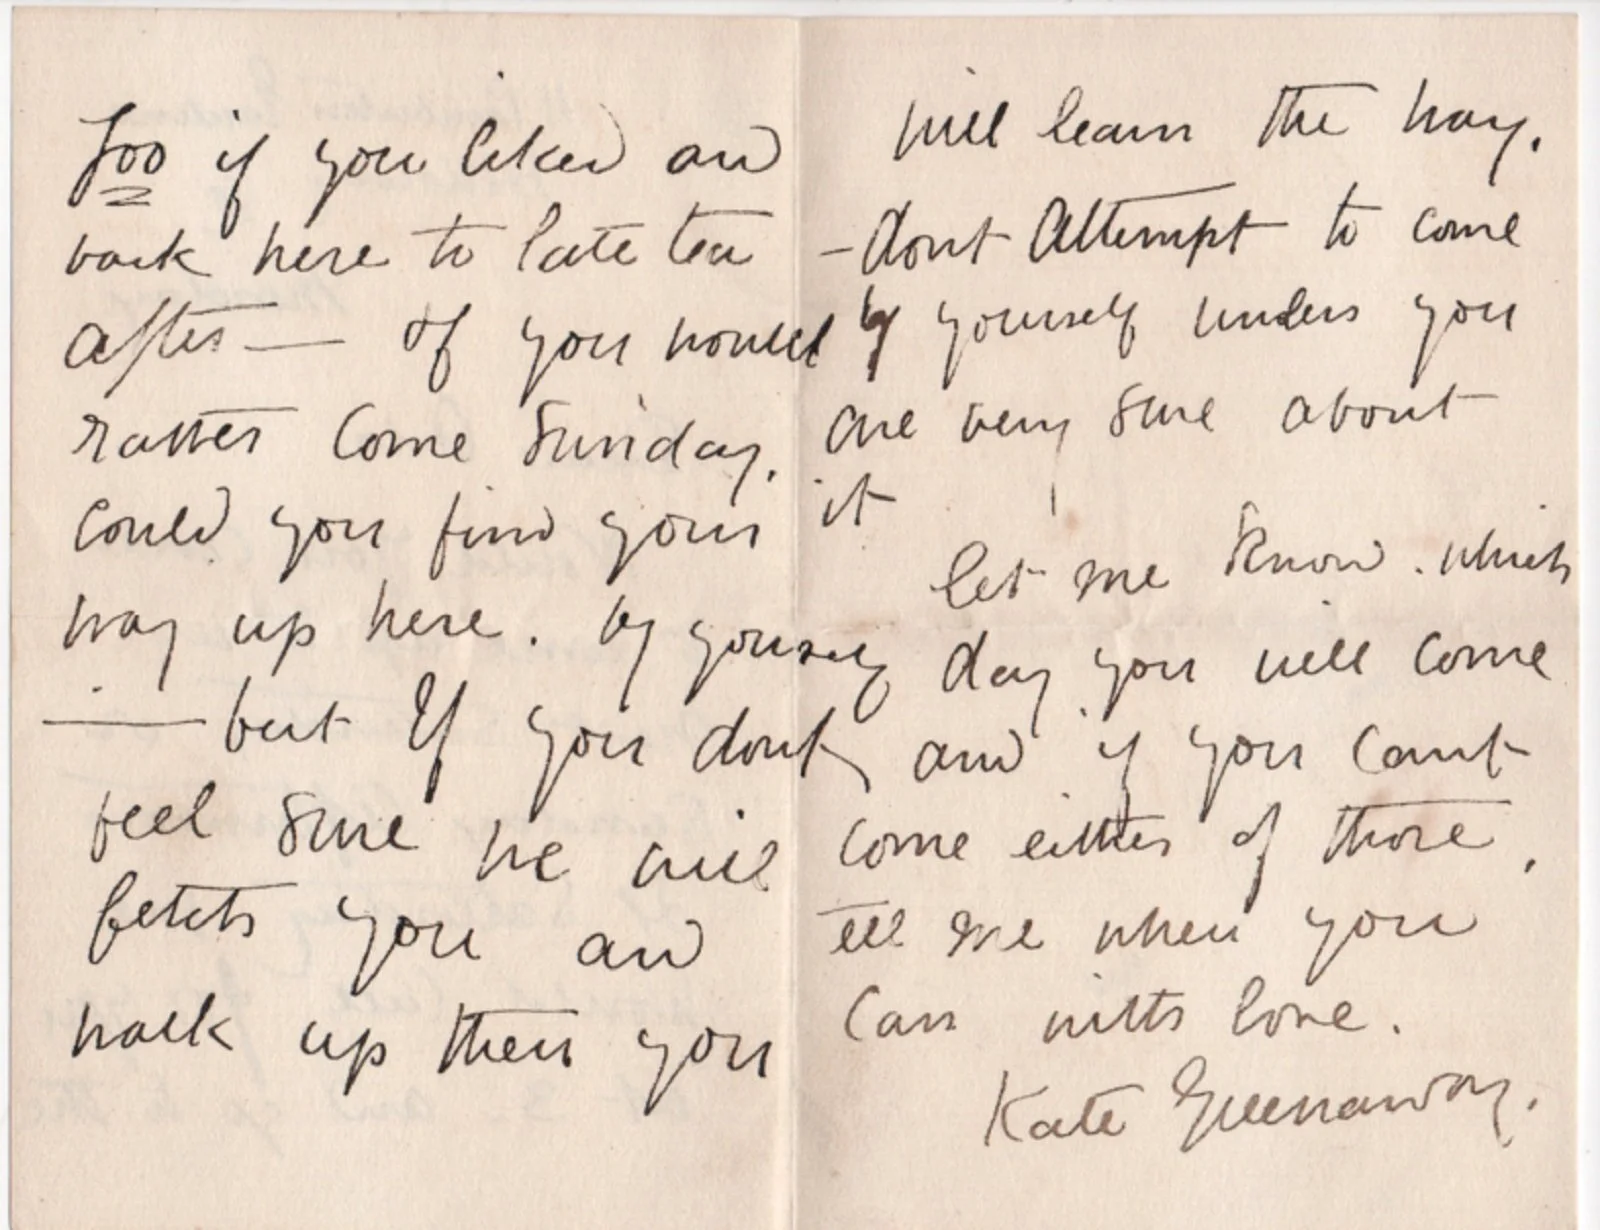 Zoo if you liked and
back here to late tea
after — If you would
rather come Sunday,
could you find your
way up here. by yourself
— but If you dont
feel sure we will
fetch you and
walk up then you
will learn the way.
- dont attempt to come
by yourself unless you
are very sure about
it
let me know. which
day you will come
and if you cant
come either of those,
tell me when you
can with love.
Kate Greenaway.